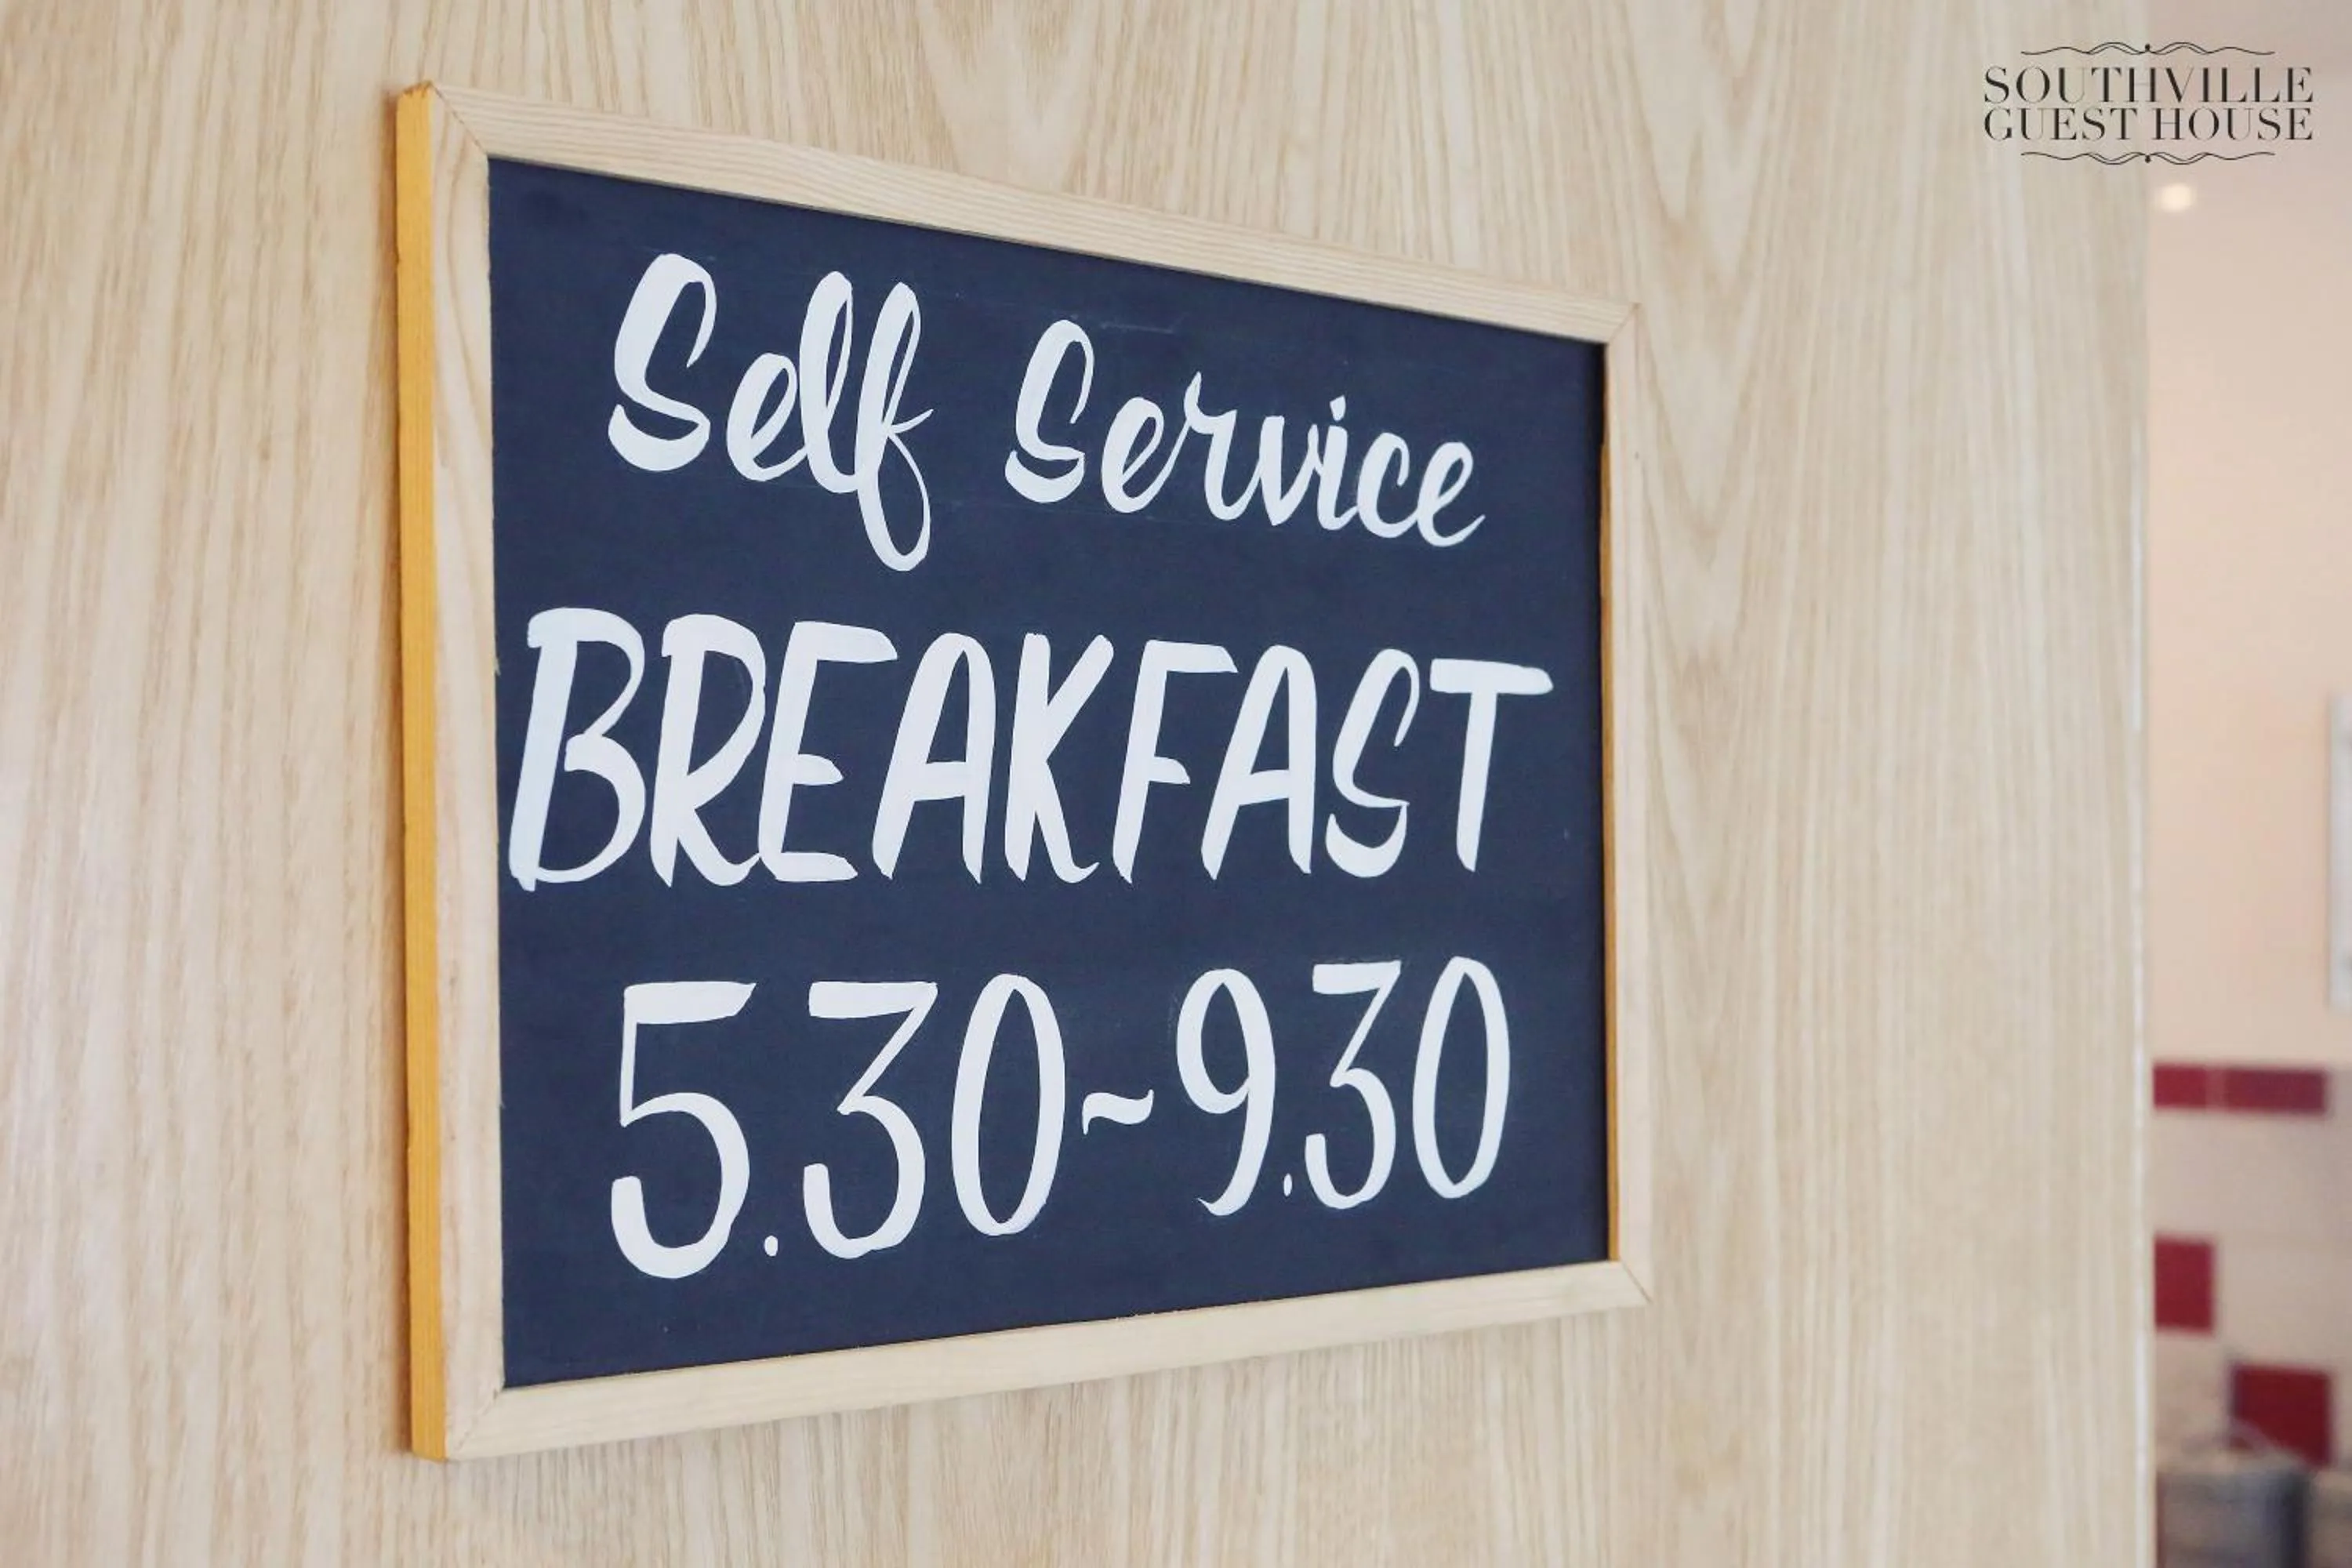 SOUTHVILLE
GUEST HOUSE
Self Service
BREAKFAST
5.30~9.30